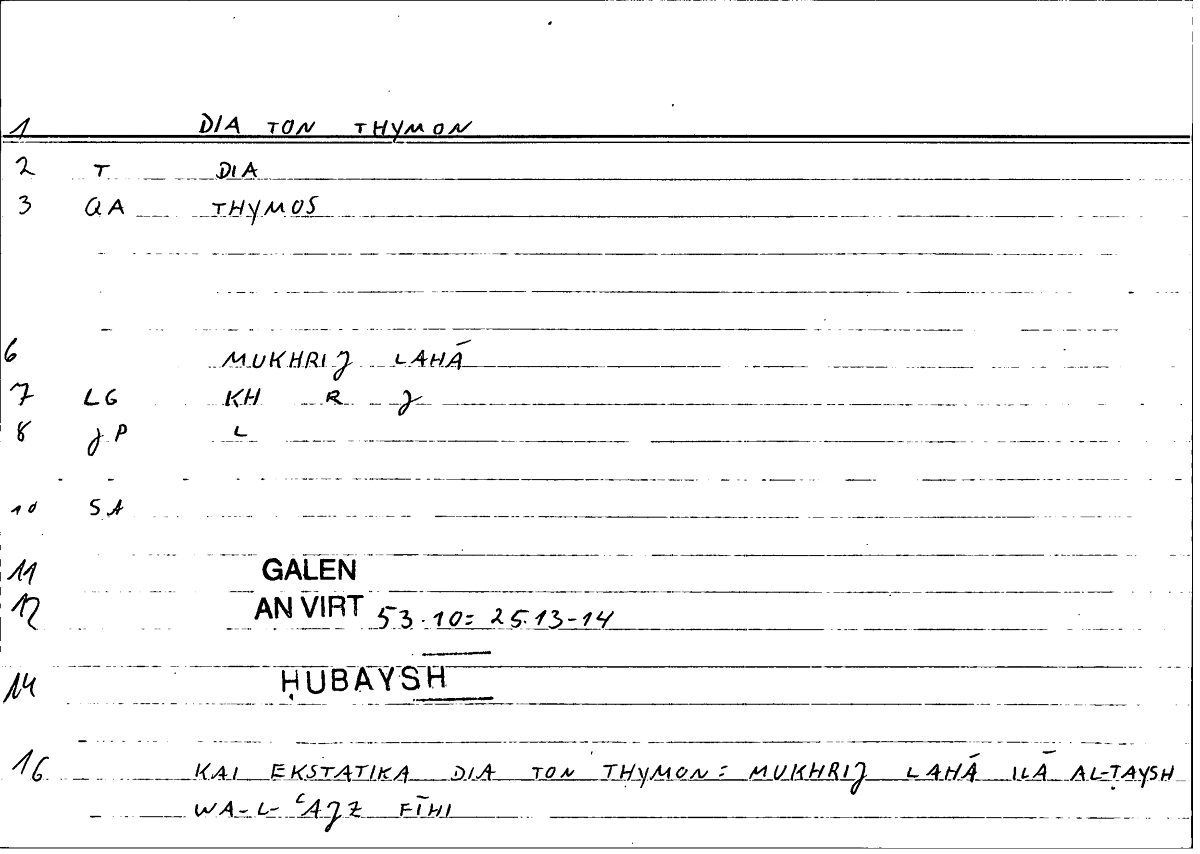 1 DIA TON THYMON
2 T DIA
3 QA THYMOS
6 MUKHRIJ LAHĀ
7 LG KH R J
8 JP L
10 SA
11 GALEN
12 AN VIRT 53.10= 25.13-14
14 ḤUBAYSH
16 KAI EKSTATIKA DIA TON THYMON= MUKHRIJ LAHĀ ILĀ AL-ṬAYSH
WA-L-ʿAJZ FĪHI